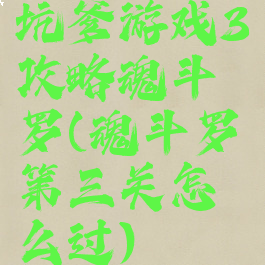 坑爹游戏3
攻略魂斗
罗(魂斗罗
第三关怎
么过)